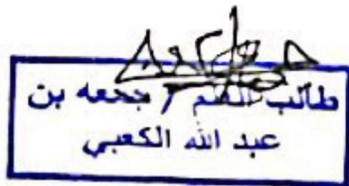 طالب العلم / جمعه بن
عبد الله الكعبي